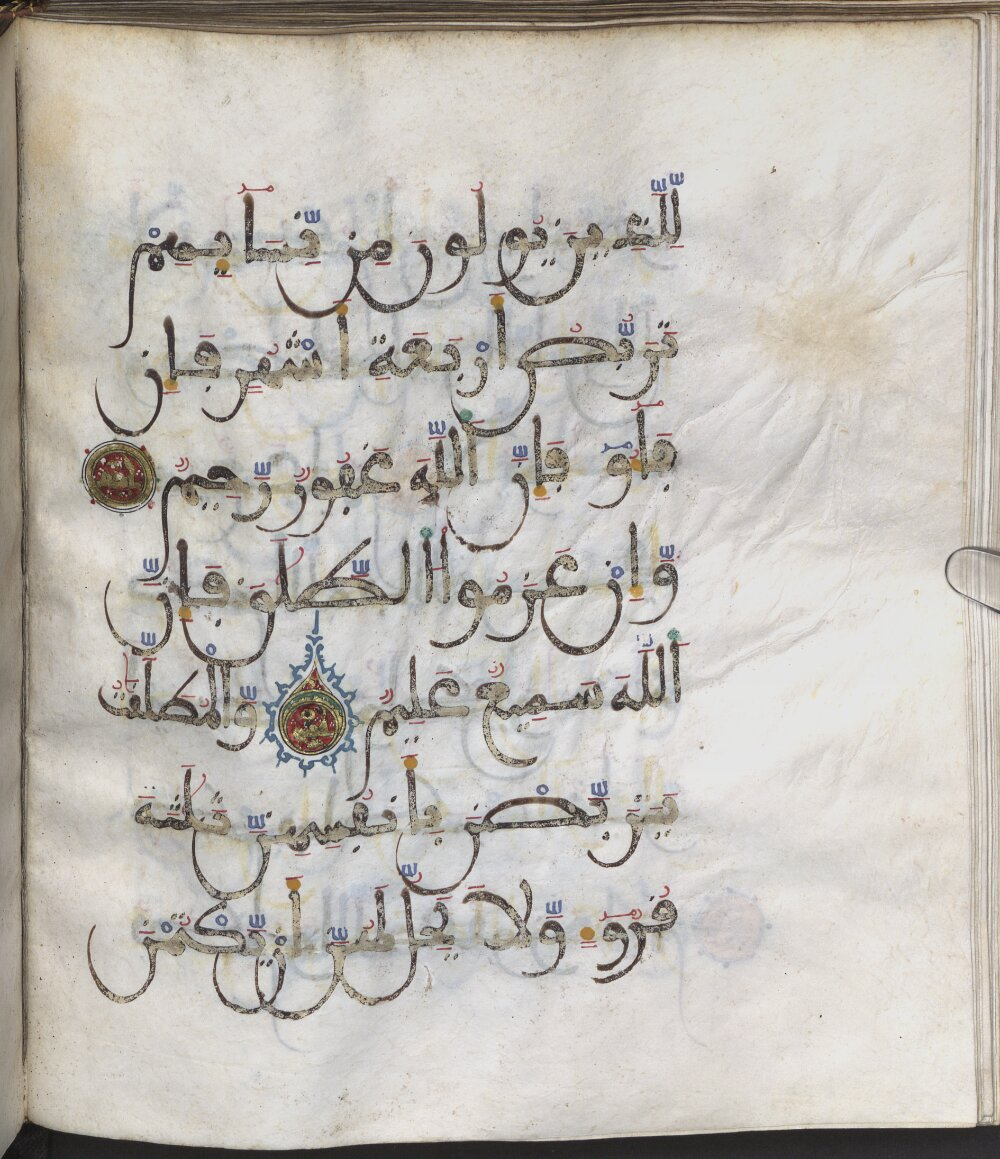 لِّلَّذِينَ يُولُونَ مِن نِّسَآيِٕهِمْ
تَرَبُّصُ أَرْبَعَةِ أَشْهُرٍ فَإِن
فَآءُو فَإِنَّ ٱللَّهَ غَفُورٌ رَّحِيمٌ
وَّإِنْ عَزَمُوا۟ ٱلطَّلَٰقَ فَإِنَّ
ٱللَّهَ سَمِيعٌ عَلِيمٌ وَّٱلْمُطَلَّقَٰتُ
يَتَرَبَّصْنَ بِأَنفُسِهِنَّ ثَلَٰثَةَ
قُرُوٓءٍ وَّلَا يَحِلُّ لَهُنَّ أَنْ يَّكْتُمْنَ